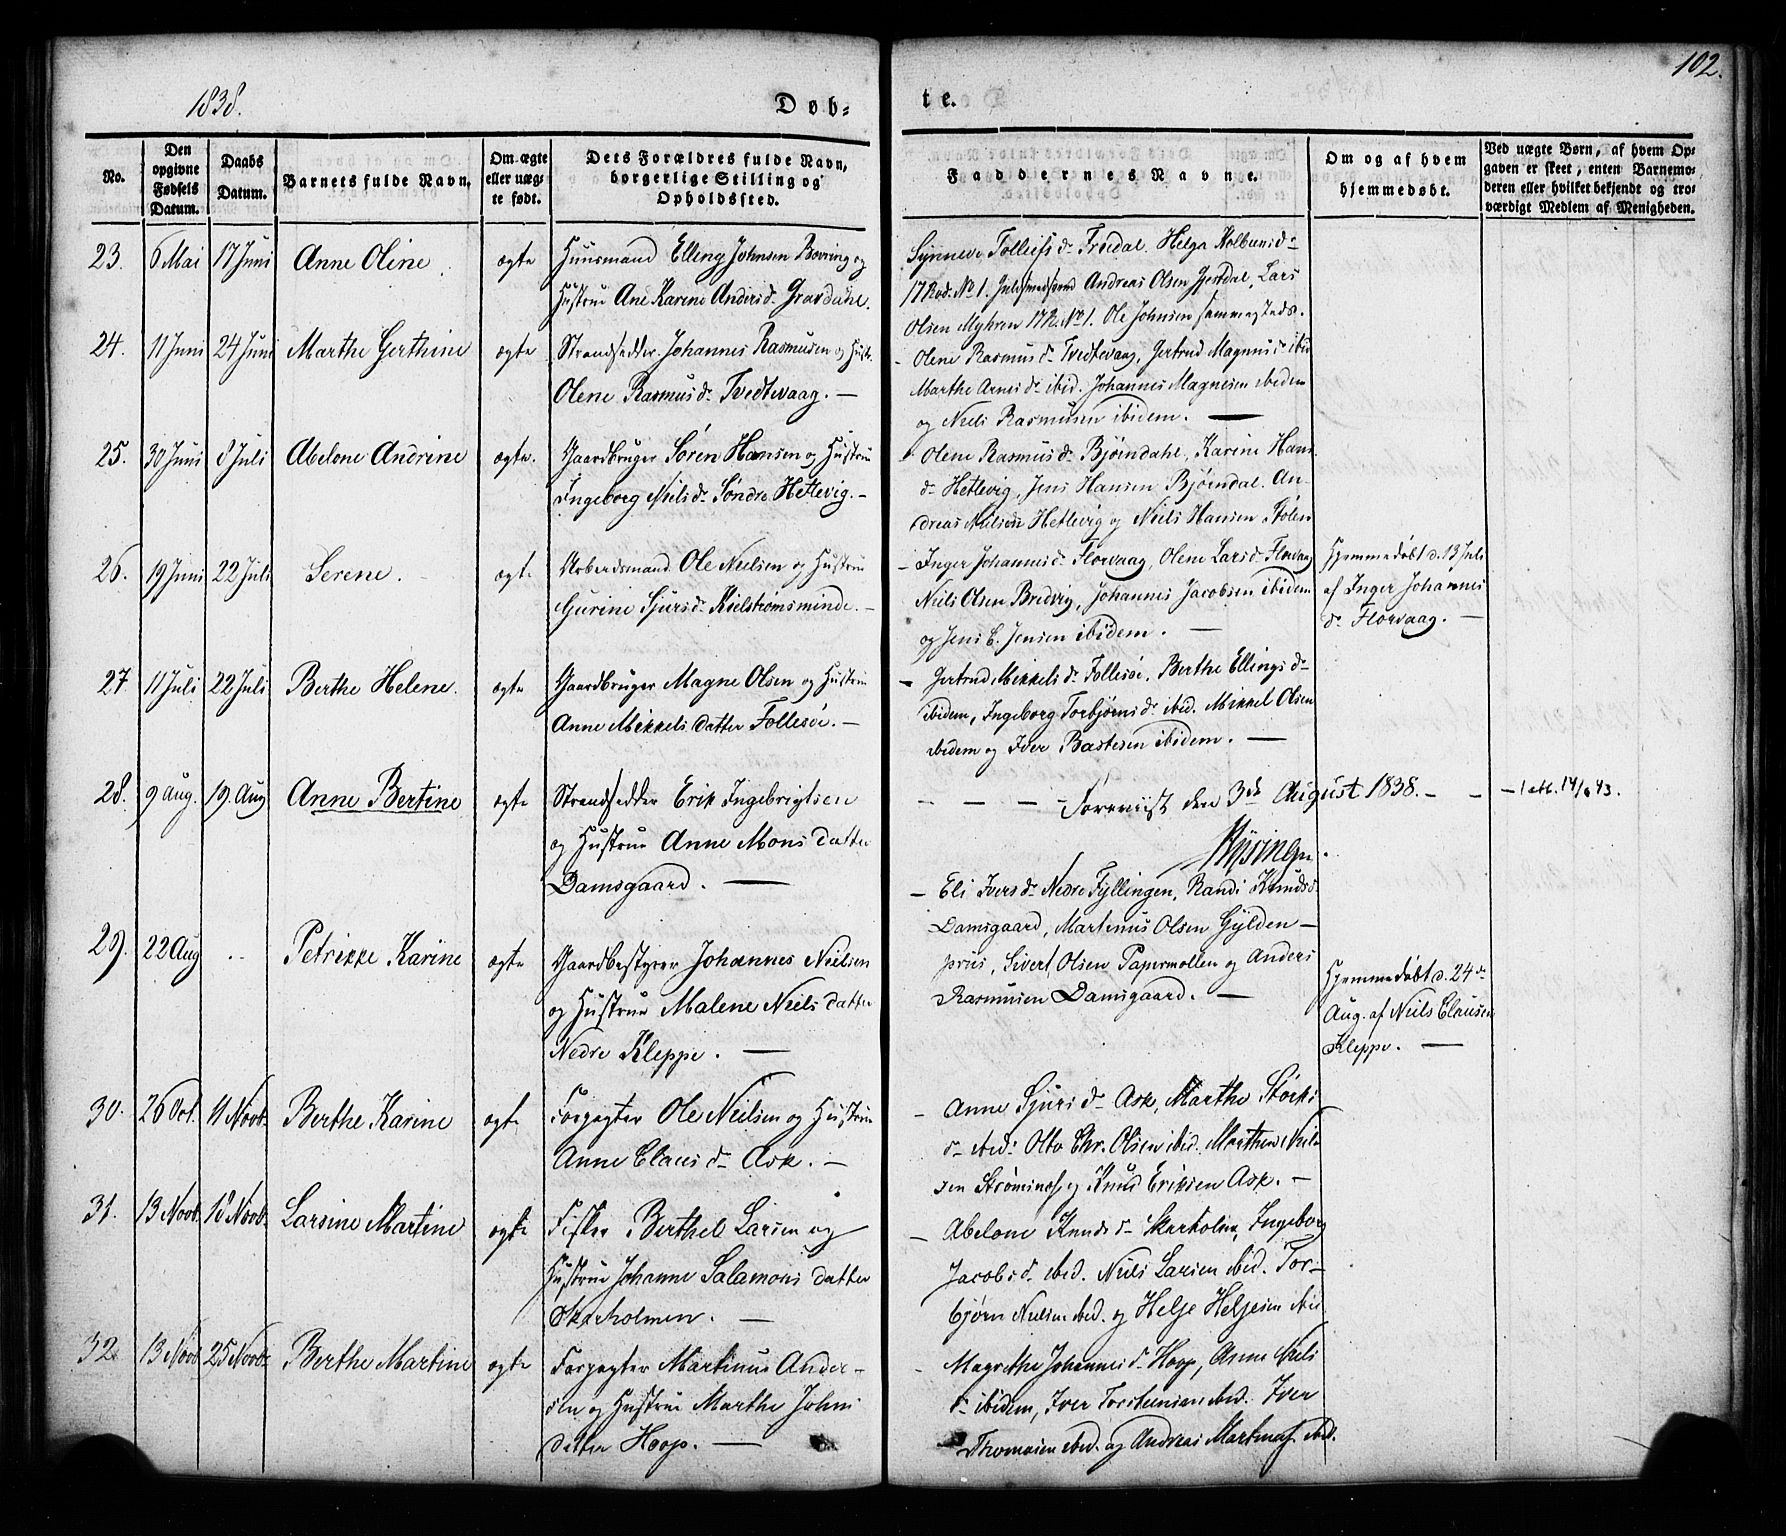 1838.
Døb=
te.
102.
No.
Den opgivne Fødsels Datum.
Daabs Datum.
Barnets fulde Navn.
Om ægte eller uægte født.
Dets Forældres fulde Navn, borgerlige Stilling og Opholdssted.
Faddernes Navne.
Om og af hvem hjemmedøbt.
Ved uægte Børn, af hvem Opgaven er skeet, enten Barnemoderen eller hvilket bekjendt og troværdigt Medlem af Menigheden.
23. 6 Mai 17 Juni Anne Oline ægte Huusmand Elling Johnsen Bovring og
Hustrue Ane Karine Andersdr Gravdahl.
Synneve Tolleifs dr Frøedal. Helga Kolbeinsdr
17 Rod. No 1. Andreas Olsen Gjerdal, Lars
Olsen Myhren 17 R. No 1. Ole Johnsen sammesteds.
24. 11 Juni 24 Juni Marthe Gerthine ægte Strandsedder Johannes Rasmusen og Hustr.
Olene Rasmusdr Tvedtevaag. —
- Olene Rasmusdr Tvedtevaag, Gertrud Magnusdr ibid
Marthe Arnesdr ibid. Johannes Magnesen ibidem
og Niels Rasmusen ibidem. —
25. 30 Juni 8 Juli Abelone Andrine ægte. Gaardbruger Søren Hansen og Hustrue
Ingeborg Nielsdr Søndre Hetlevig. -
- Olene Rasmusdr Bjørndahl, Karine Hans
dr Hetlevig, Jens Hansen Bjørndal. An-
dreas Nielsen Hetlevig og Niels Hansen Stolen
26. 19 Juni 22 Juli Serene. ægte Arbeidsmand Ole Nielsen og Hustrue
Gurine Sjursdr Kielstrømsminde. -
- Inger Johannesdr Florvaag, Olene Larsdr Florvaag
Niels Olsen Bredvig, Johannes Jacobsen ibidem
og Jens C. Jensen ibidem. —
Hjemmedøbt d. 13 Juli
af Inger Johannes
dr Florvaag. —
27 11 Juli 22 Juli Berthe Helene. ægte Gaardbruger Magne Olsen og Hustrue
Anne Mikkels datter Follesøe. -
- Gertrud Mikkelsdr Follesøe, Berthe Ellingsdr
ibidem, Ingeborg Torbjørnsdr ibid. Mikkel Olsen
ibidem og Iver Bastesen ibidem. —
28. 9 Aug. 19. Aug Anne Bertine ægte Strandsedder Erik Ingebrigtsen
og Hustrue Anne Mons datter
Damsgaard. —
- - - Foreviist den 3de August 1838. - -
- Eli Iversdr Nedre Fyllingen, Randi Knudsd
Damsgaard, Martinus Olsen Gylden-
priis, Sivert Olsen Papirmøllen og Anders
Rasmusen Damsgaard. —
29. 22 Aug .. Petrikke Karine ægte Gaardbestyrer Johannes Nielsen
og Hustrue Malene Niels datter
Nedre Kleppe. —
Hjemmedøbt d. 24de
Aug. af Niels Clausen
Kleppe. —
30. 26 Oct. 11 Novb. Berthe Karine ægte Forpagter Ole Nielsen og Hustrue
Anne Clausdr Ask. —
- Anne Sjursdr Ask, Marthe Størks
dr ibid. Otto Chr. Olsen ibid. Marthen Niel
sen Strømsnes og Knud Eriksen Ask. -
31. 13 Novb. 18 Novb. Larsine Martine ægte Fisker Berthel Larsen og
Hustrue Johanne Salamons datter
Skarholmen. —
- Abelone Knudsdr Skarholm, Ingeborg
Jacobsdr ibid. Niels Larsen ibid. Tor-
bjørn Nielsen ibid. og Helje Heljesen ibid
32. 13 Novb 25 Novbr Berthe Martine ægte Forpagter Martinus Ander-
sen og Hustrue Marthe Johns
datter Hoop. —
- Magrethe Johannesdr Hoop, Anne Niels
dr ibidem, Iver Torsteinsen ibid. Iver
Thomasen ibid. og Andreas Martinus. ibid.